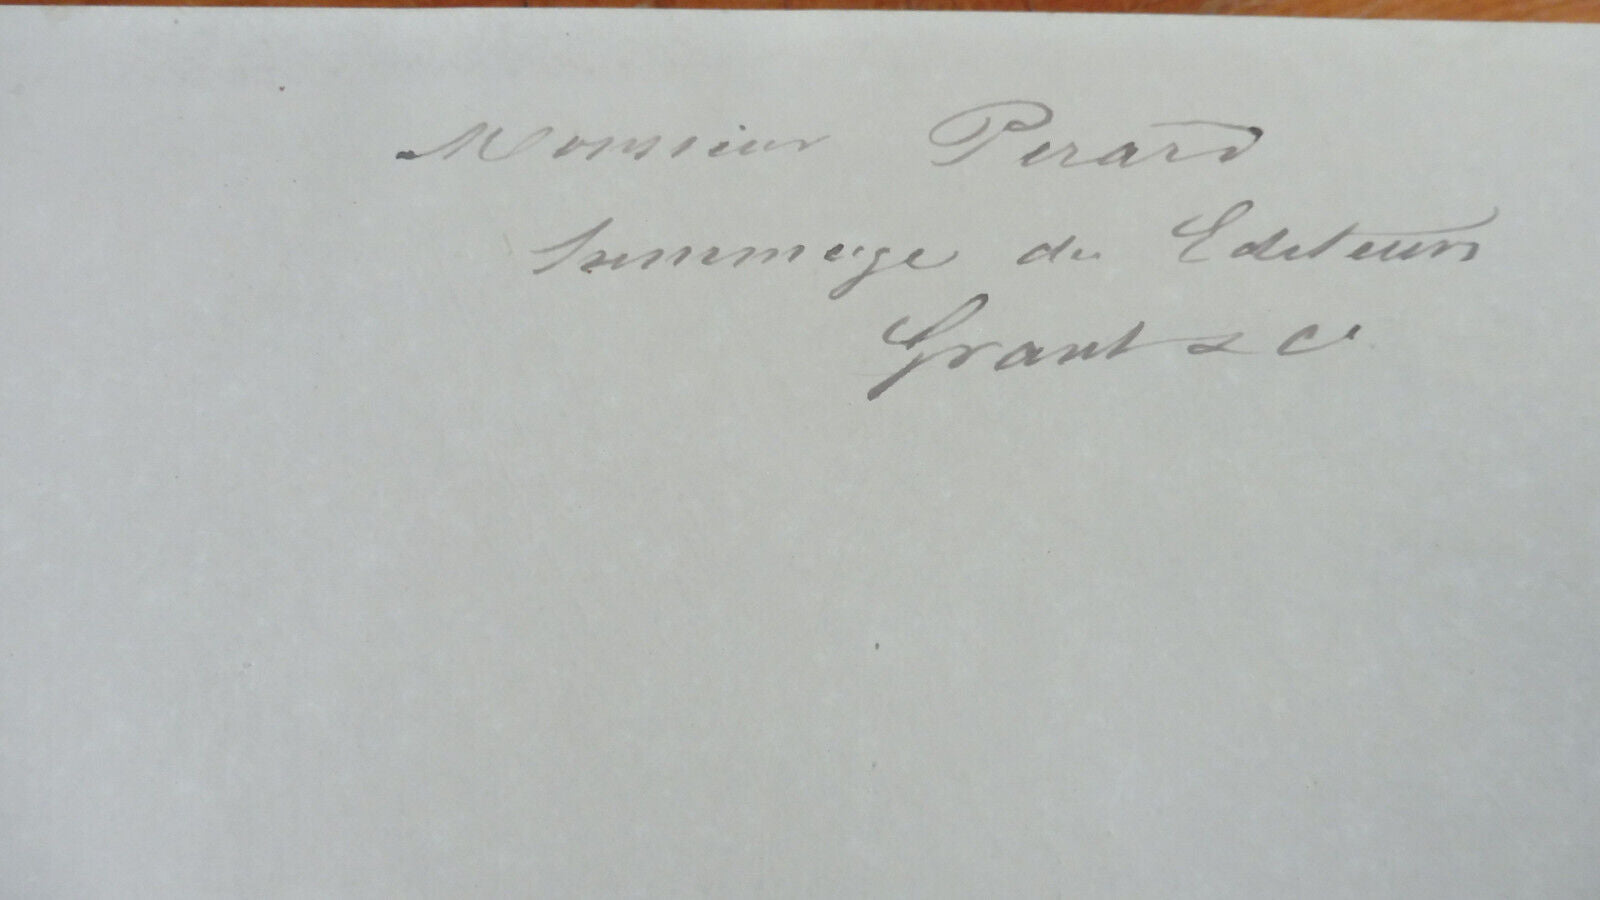 Monsieur Perard
hommage du Editeurs
Grant & Ce